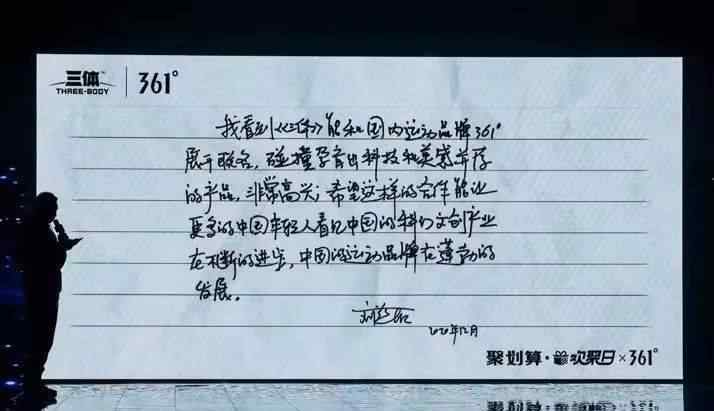 三体
THREE-BODY
361°
我看到《三体》能和国内运动品牌361°
展开联名，碰撞孕育出科技和美感并存
的产品，非常高兴；希望这样的合作能让
更多的中国年轻人看见中国的科幻文创产业
在不断的进步，中国的运动品牌在蓬勃的
发展。
刘慈欣
2020年12月
聚划算·首次聚日×361°
聚划算·首次聚日×361°